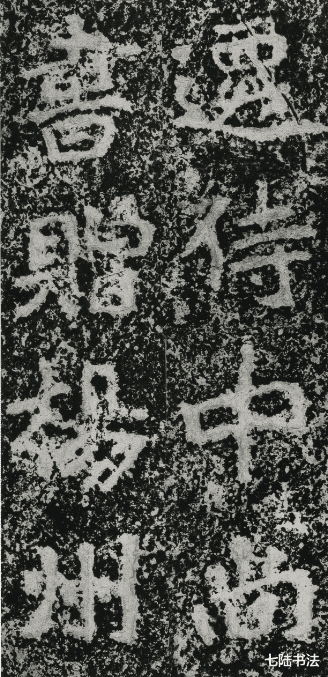 遷侍中尚
書贈揚州
七陆书法